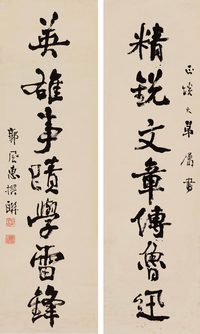 正大弟屬書
精銳文章傳魯迅
英雄事蹟學雷鋒
郭風惠撰聯